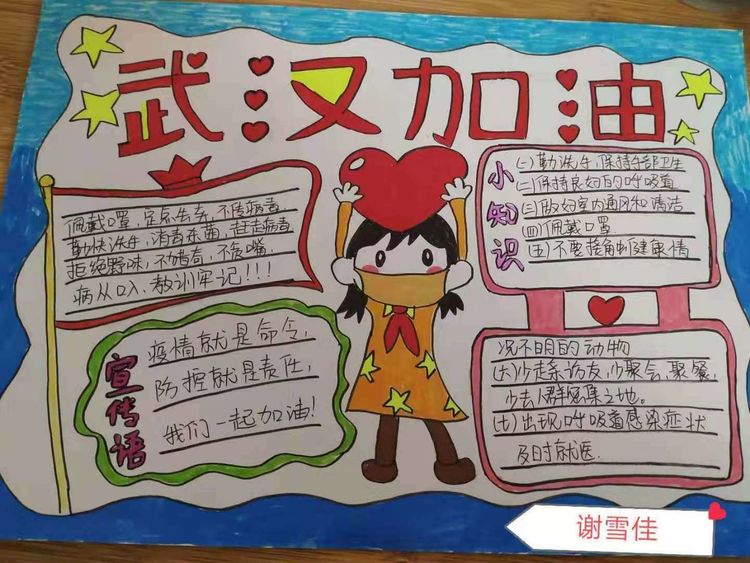 武汉加油
佩戴口罩,定点丢弃,不传病毒
勤快洗手,消毒杀菌,赶走病毒
拒绝野味,不猎奇,不贪嘴
病从口入,教训牢记!!!
宣传语
疫情就是命令,
防控就是责任,
我们一起加油!
小知识
(一)勤洗手,保持手部卫生
(二)保持良好的呼吸道
(三)做好室内通风和清洁
(四)佩戴口罩
(五)不要接触健康情
况不明的动物
(六)少走亲访友,少聚会,聚餐,
少去人群密集之地。
(七)出现呼吸道感染症状
及时就医
谢雪佳